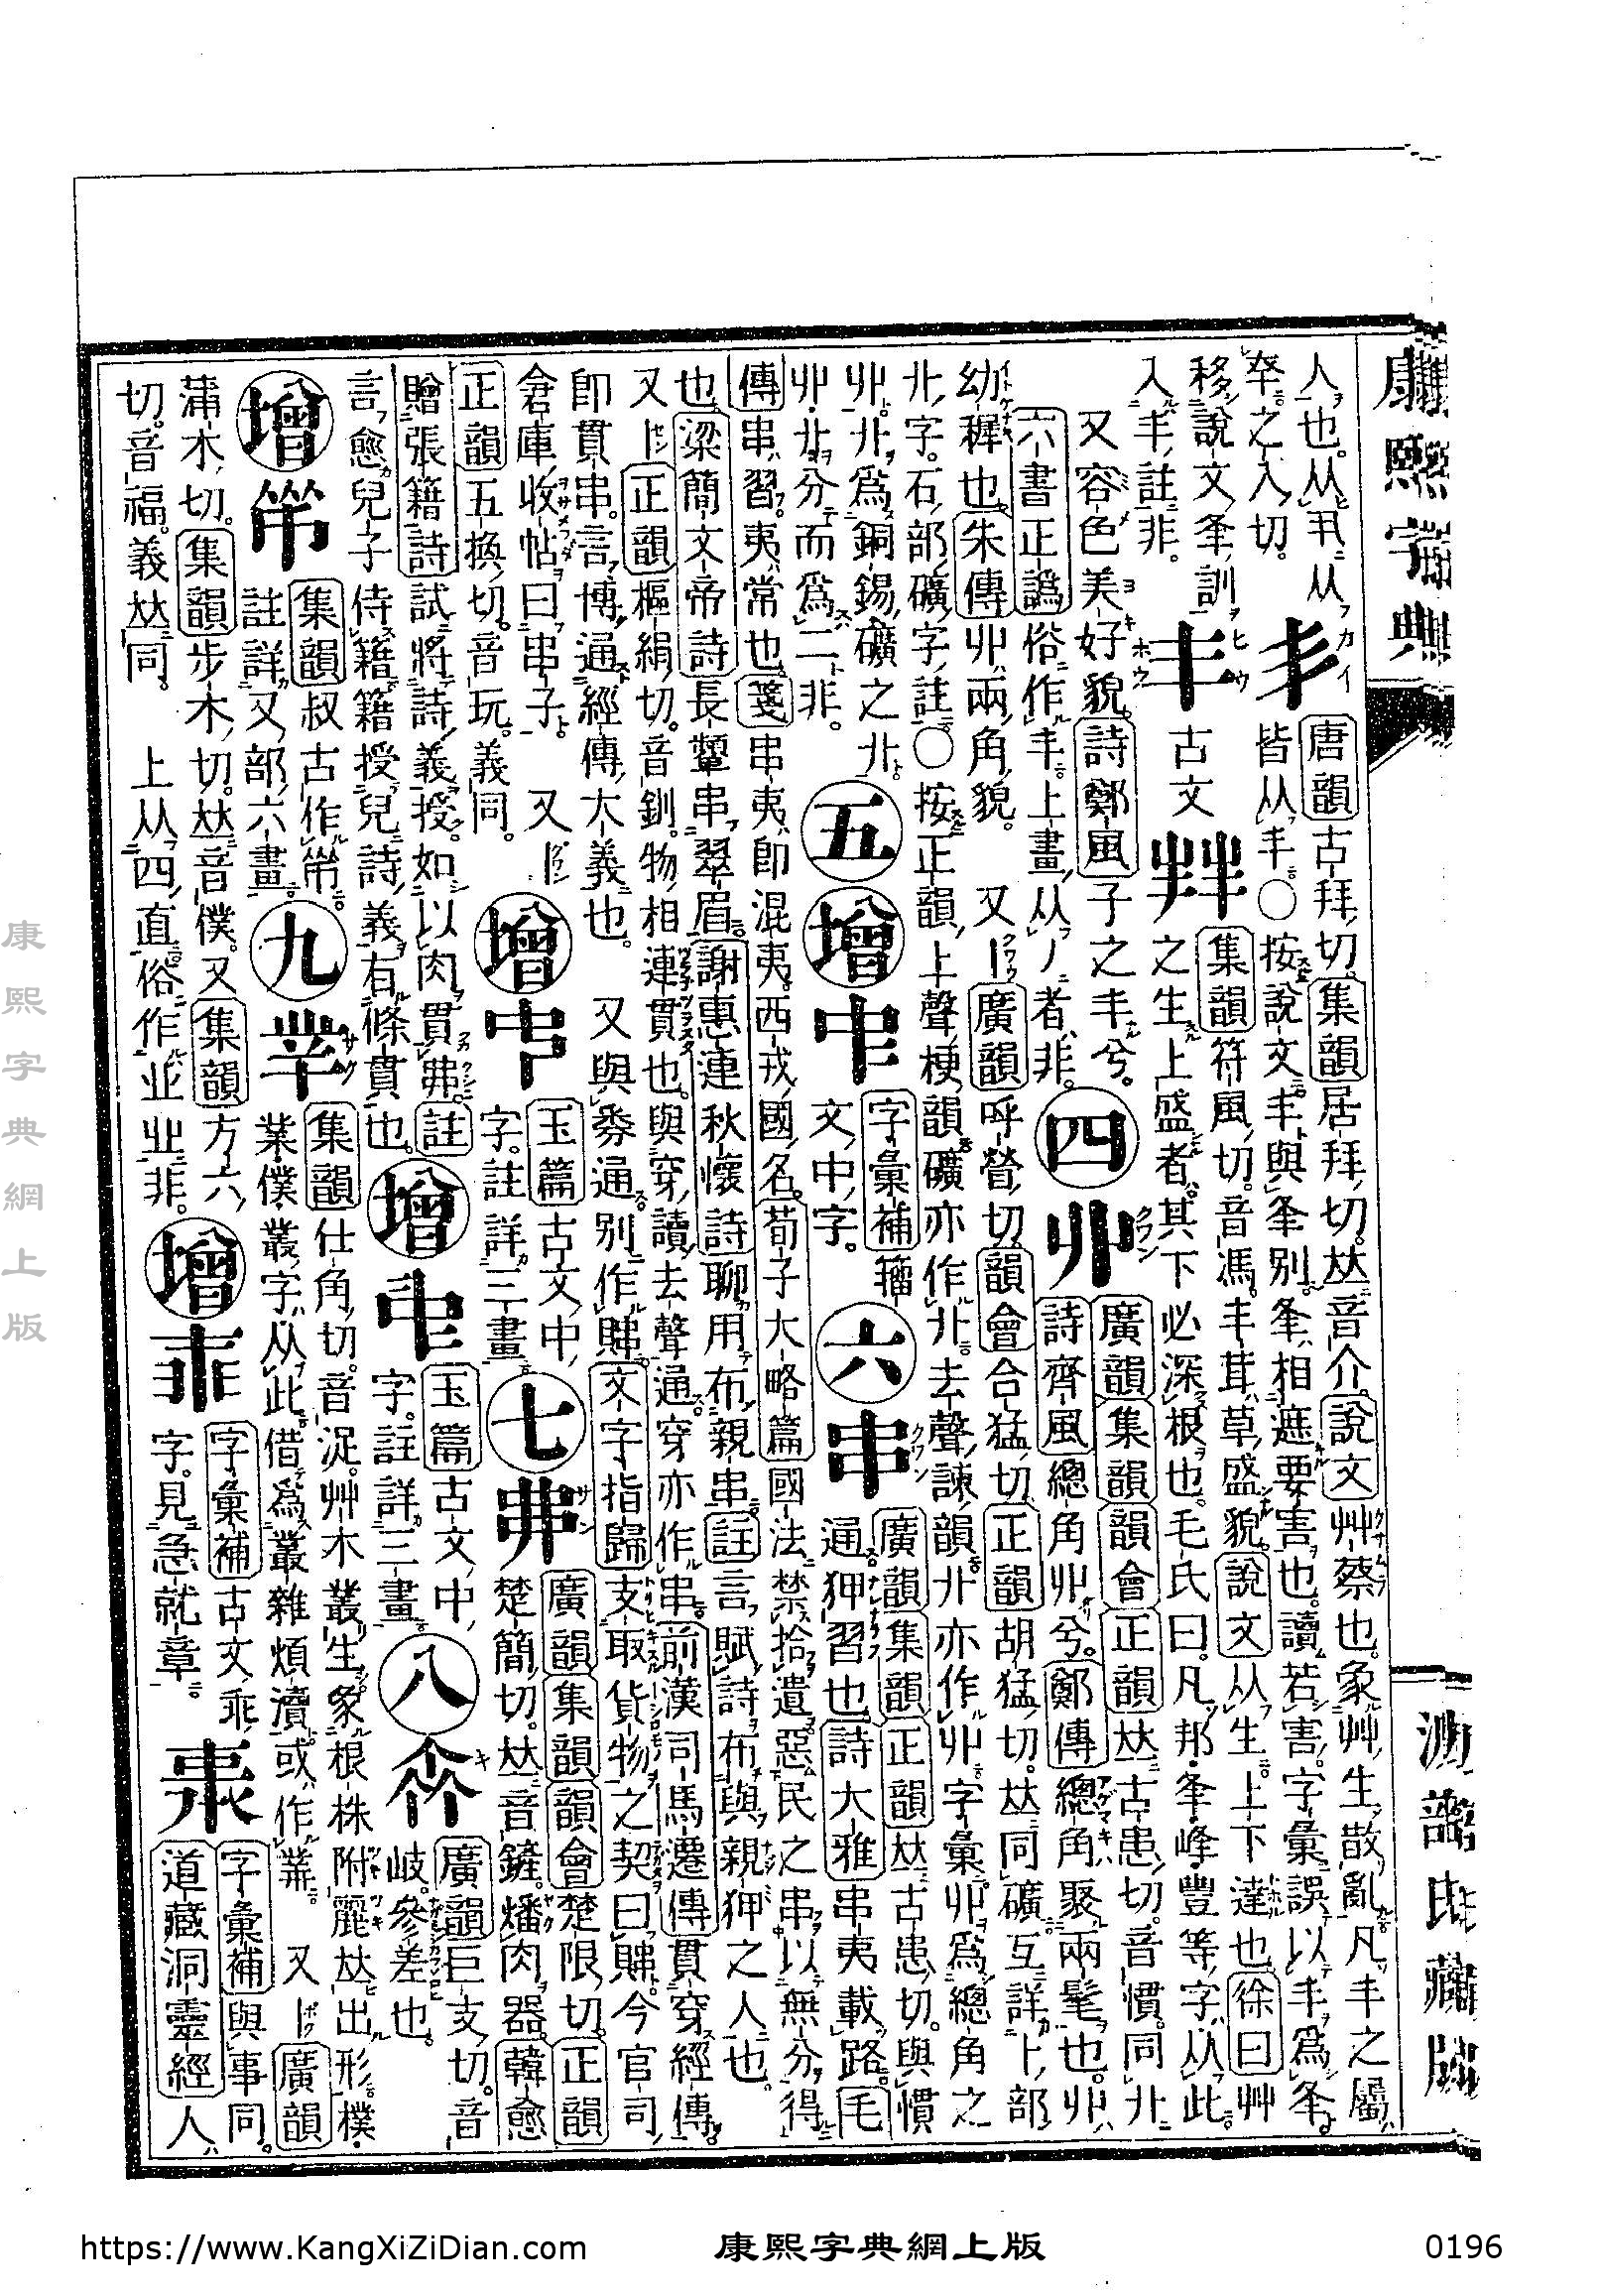 人也。从𠦄从
丯
唐韻古拜切。集韻居拜切。𠀤音介。說文艸蔡也。象艸生散亂。凡丯之屬
之入切。
皆从丯。○按說文丯與夆別。夆相遮要害也。讀若害。字彙誤以丯爲夆
移說文夆訓
入丯註非。
丰
古文
集韻符風切。音馮。丰茸草盛貌。說文从生。上下達也。徐曰艸
之生上盛者其下必深根也。毛氏曰。凡邦夆峰豐等字从此。
又容色美好貌。詩鄭風子之丰兮。
六書正譌俗作丰上畫从丿者非。
四
丱
廣韻集韻韻會正韻𠀤古患切。音慣。同卝
詩齊風總角丱兮。鄭傳總角聚兩髦也。丱
幼穉也朱傳丱兩角貌。又丨廣韻呼營切韻會合猛切正韻胡猛切。𠀤同礦。互詳卜部
卝字。石部礦字註○按正韻上聲梗韻礦亦作卝。去聲諫韻卝亦作丱字彙丱爲總角之
丱卝爲銅錫礦之卝。
丱卝分而爲二非。
五
增
字彙補籀
文中字。
六
串
廣韻集韻正韻𠀤古患切。與慣
通狎習也詩大雅串夷載路。毛
傳串習夷常也。箋串夷卽混夷。西戎國名。荀子大略篇國法禁拾遺惡民之串以無分得
也梁簡文帝詩長顰串翠眉謝惠連秋懷詩聊用布親串註言賦詩布與親狎之人也。
又丨正韻樞絹切。音釧。物相連貫也與穿讀去聲通。穿亦作串前漢司馬遷傳貫穿經傳。
卽貫串。言博通經傳大義也。又與弮通。別作賗。文字指歸支取貨物之契曰賗。今官司
倉庫收帖曰串子。又丨
正韻五換切。音玩。義同。
增
玉篇古文中
字。註詳三畫
七
弗
廣韻集韻韻會楚限切。正韻
楚簡切。𠀤音鏟。燔肉器。韓愈
贈張籍詩試將詩義授。如以肉貫弗。註
言愈兒子侍籍籍授兒詩義有條貫也。
增
玉篇古文中
字。註詳三畫。
八
廣韻巨支切。音
岐。參差也。
增
集韻叔古作
註詳又部六畫
九
丵
集韻仕角切。音浞。艸木叢生象根株附麗𠀤出形。樸
業僕叢字从此借爲叢雜煩瀆或作䒑又丨廣韻
蒲木切。集韻步木切。𠀤音僕。又集韻方六
切。音福。義𠀤同。上从四直俗作业非。
增
字彙補古文乖
字。見急就章。
字彙補與事同。
道藏洞靈經人
康熙字典網上版
https://www.KangXiZiDian.com
康熙字典網上版
0196